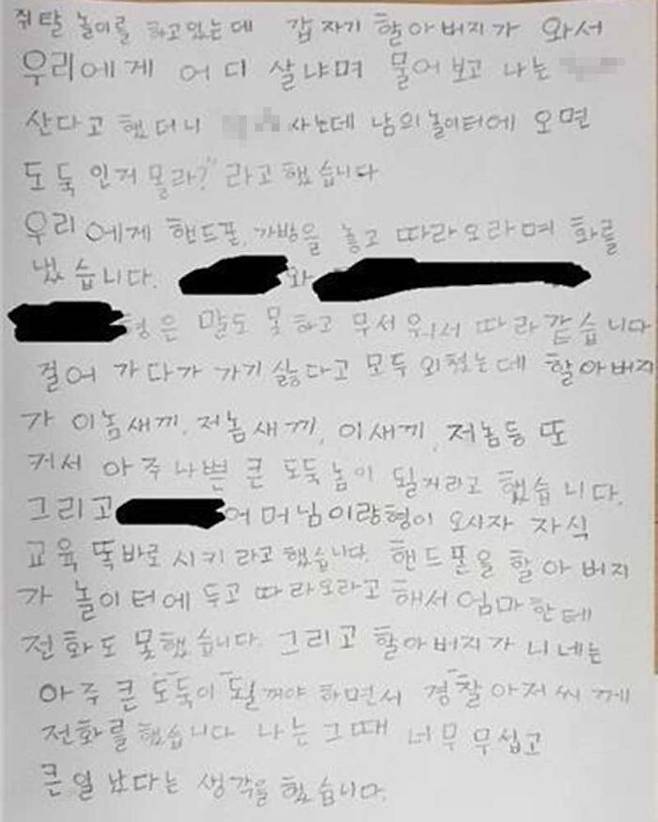 쥐탈 놀이를 하고있는데 갑자기 할아버지가 와서
우리에게 어디 살냐며 물어보고 나는
산다고 했더니 사는데 남의놀이터에 오면
도둑인거 몰라?" 라고 했습니다
우리에게 핸드폰, 가방을 놓고 따라오라며 화를
냈습니다. 와
형은 말도 못하고 무서워서 따라갔습니다
걸어가다가 가기 싫다고 모두 외쳤는데 할아버지
가 이놈새끼, 저놈새끼, 이새끼, 저놈등 또
커서 아주나쁜 큰 도둑놈이 될거라고 했습니다.
그리고 어머님이랑형이 오시자 자식
교육 똑바로 시키라고했습니다. 핸드폰을 할아버지
가 놀이터에 두고 따라오라고 해서 엄마한테
전화도 못했습니다. 그리고 할아버지가 니네는
아주 큰 도둑이 될꺼야 하면서 경찰아저씨께
전화를했습니다 나는 그때 너무 무섭고
큰일 났다는 생각을 했습니다.